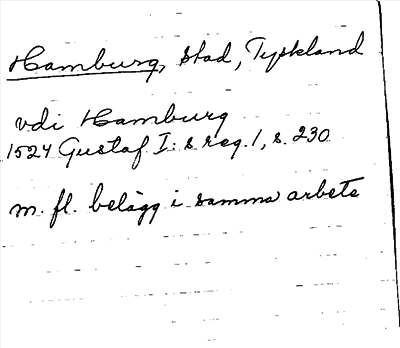 Hamburg, stad, Tyskland
vdi Hamburg
1524 Gustaf I:s reg. 1, s. 230
m. fl. belägg i samma arbete